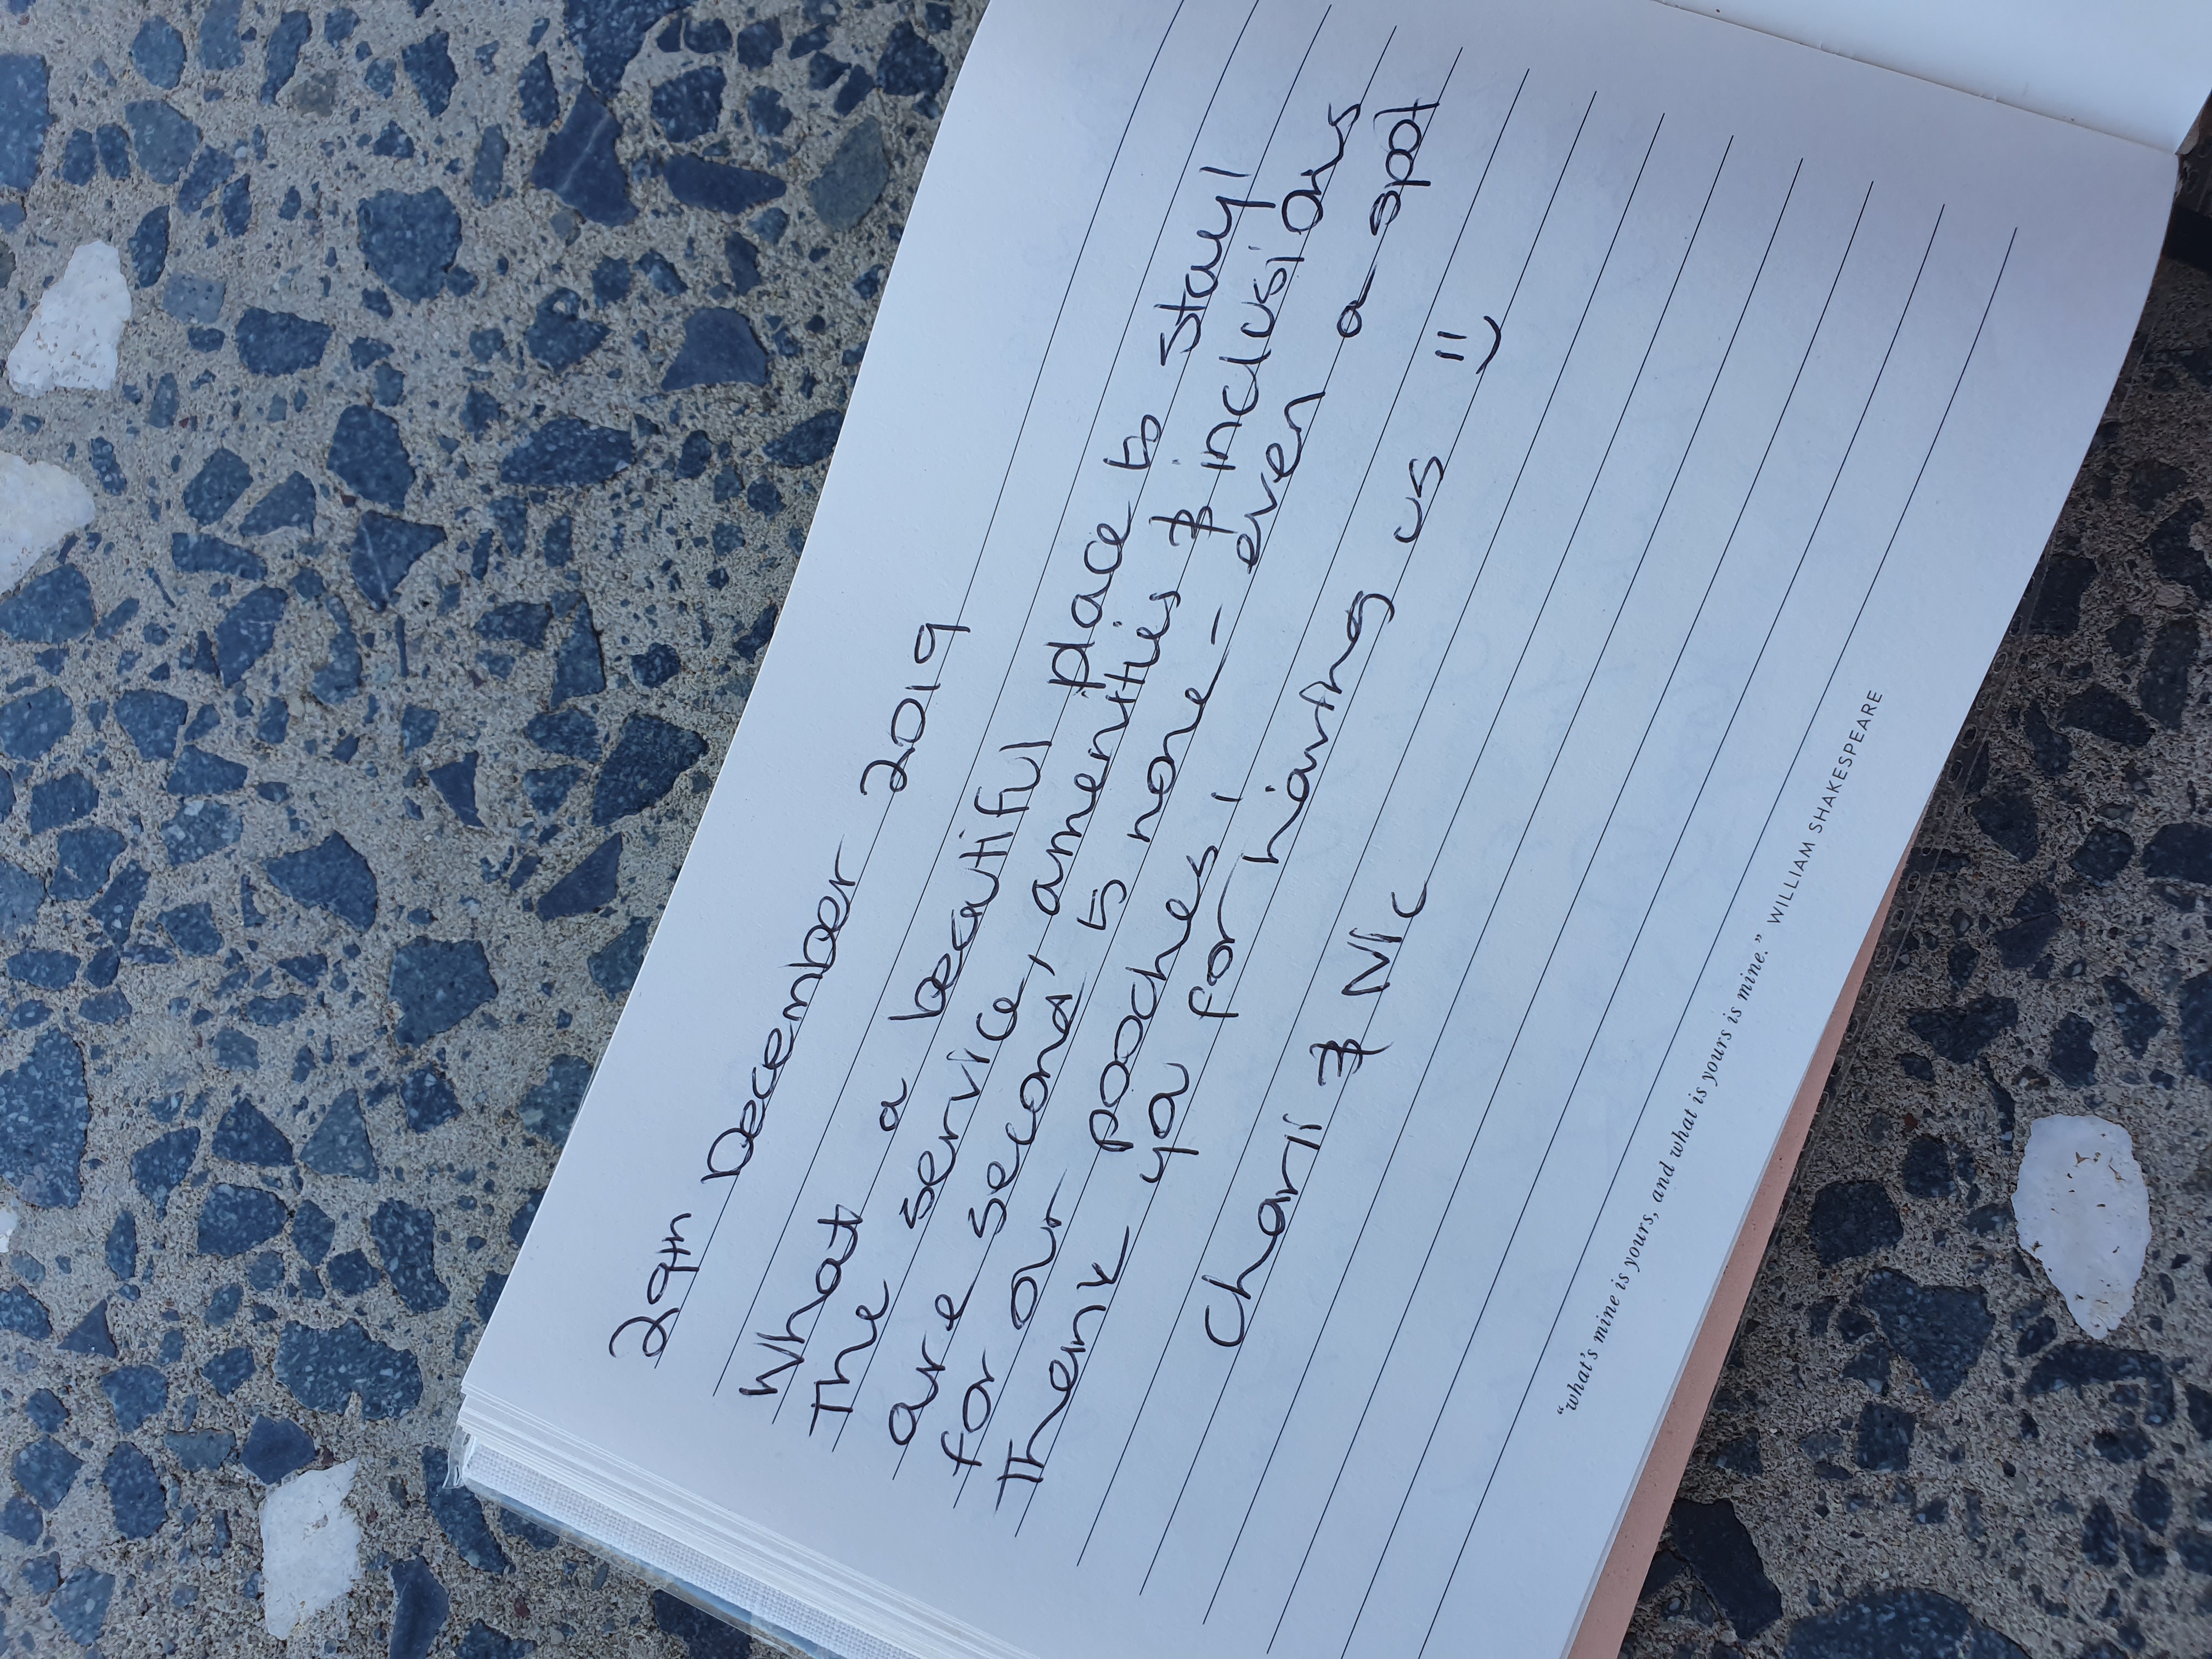 29th December 2019
What a beautiful place to stay!
The service, amenities & inclusions
are second to none - even a spot
for our pooches!
Thank ya for having us =)
Charli & Nic
"what's mine is yours, and what is yours is mine." WILLIAM SHAKESPEARE